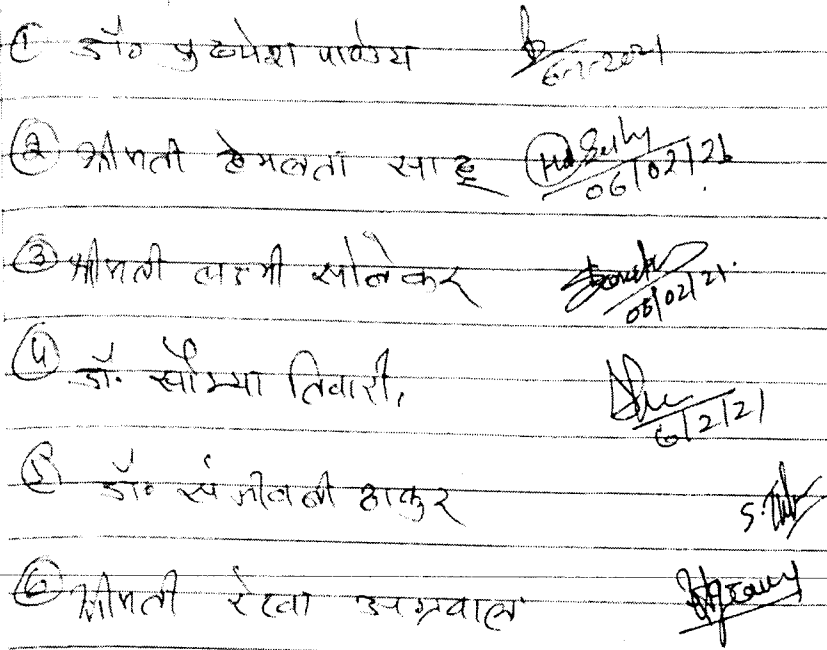 ① डॉ० पुष्पेश पाण्डेय
② श्रीमती हेमलता साहू 06/02/21
③ श्रीमती लक्ष्मी सोनेकर 06/02/21.
④ डॉ. सौम्या तिवारी, 6/2/21
⑤ डॉ० संजीवनी ठाकुर
⑥ श्रीमती रेखा अग्रवाल